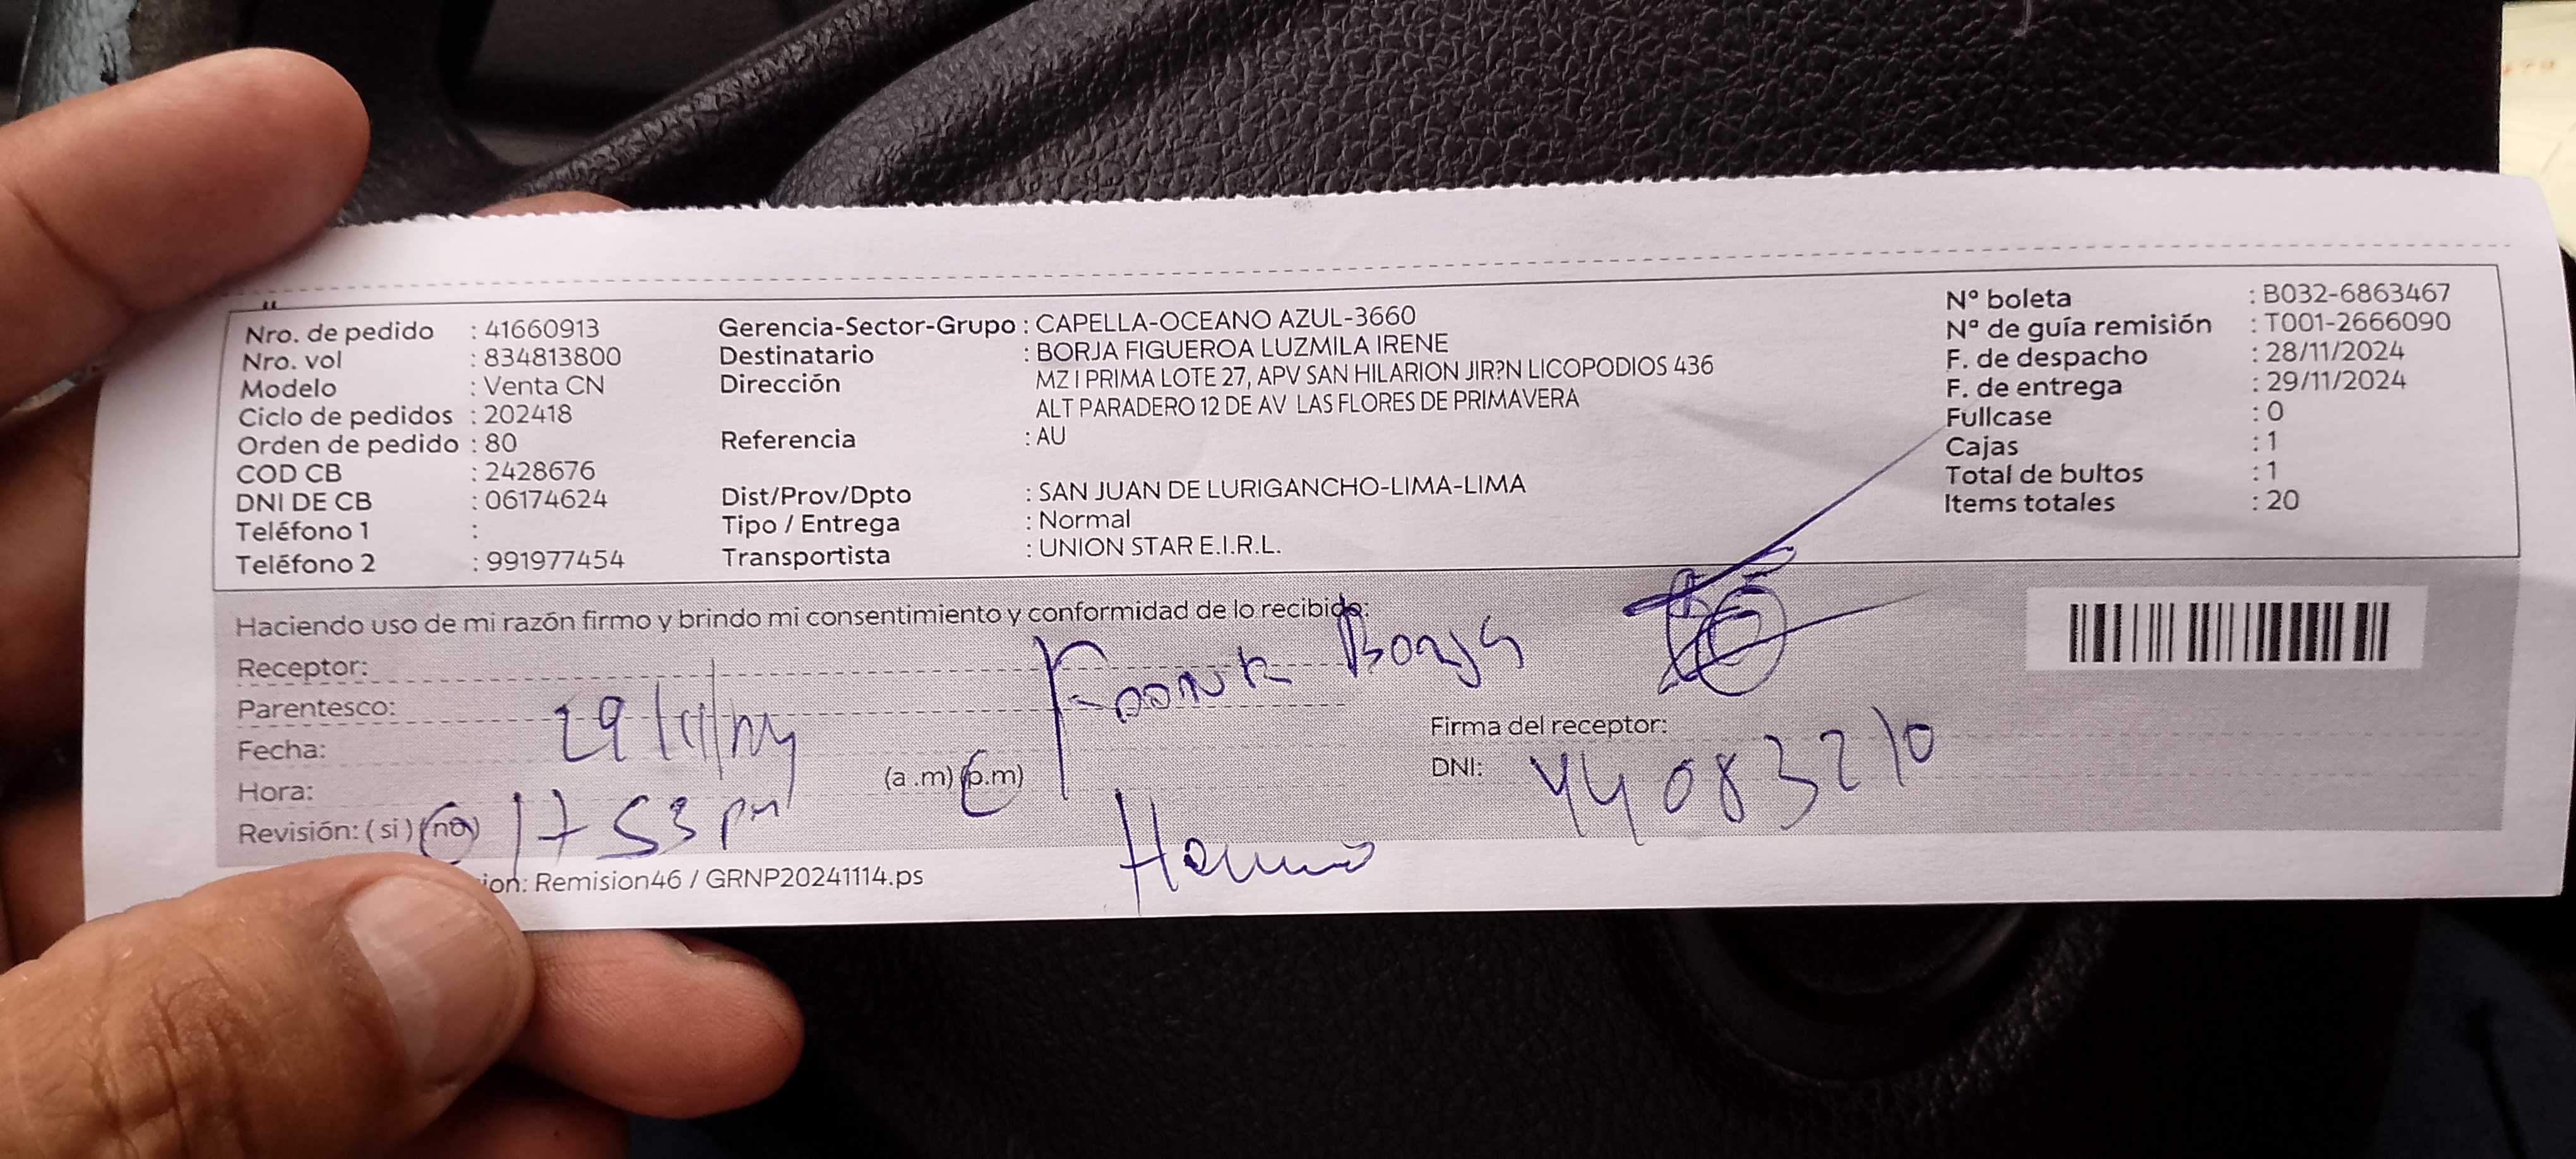 Nro. de pedido : 41660913
Nro. vol : 834813800
Modelo : Venta CN
Ciclo de pedidos : 202418
Orden de pedido : 80
COD CB : 2428676
DNI DE CB : 06174624
Teléfono 1 :
Teléfono 2 : 991977454
Gerencia-Sector-Grupo : CAPELLA-OCEANO AZUL-3660
Destinatario : BORJA FIGUEROA LUZMILA IRENE
Dirección MZ I PRIMA LOTE 27, APV SAN HILARION JIR?N LICOPODIOS 436
ALT PARADERO 12 DE AV LAS FLORES DE PRIMAVERA
Referencia : AU
Dist/Prov/Dpto : SAN JUAN DE LURIGANCHO-LIMA-LIMA
Tipo / Entrega : Normal
Transportista : UNION STAR E.I.R.L.
Nº boleta : B032-6863467
Nº de guía remisión : T001-2666090
F. de despacho : 28/11/2024
F. de entrega : 29/11/2024
Fullcase : 0
Cajas : 1
Total de bultos : 1
Items totales : 20
Haciendo uso de mi razón firmo y brindo mi consentimiento y conformidad de lo recibido:
Receptor: Borja
Parentesco:
Fecha:
Hora: (a .m) (p.m)
Revisión: ( si ) (no) 17 53 pm
Firma del receptor:
DNI: 44083210
ion: Remision46 / GRNP20241114.ps